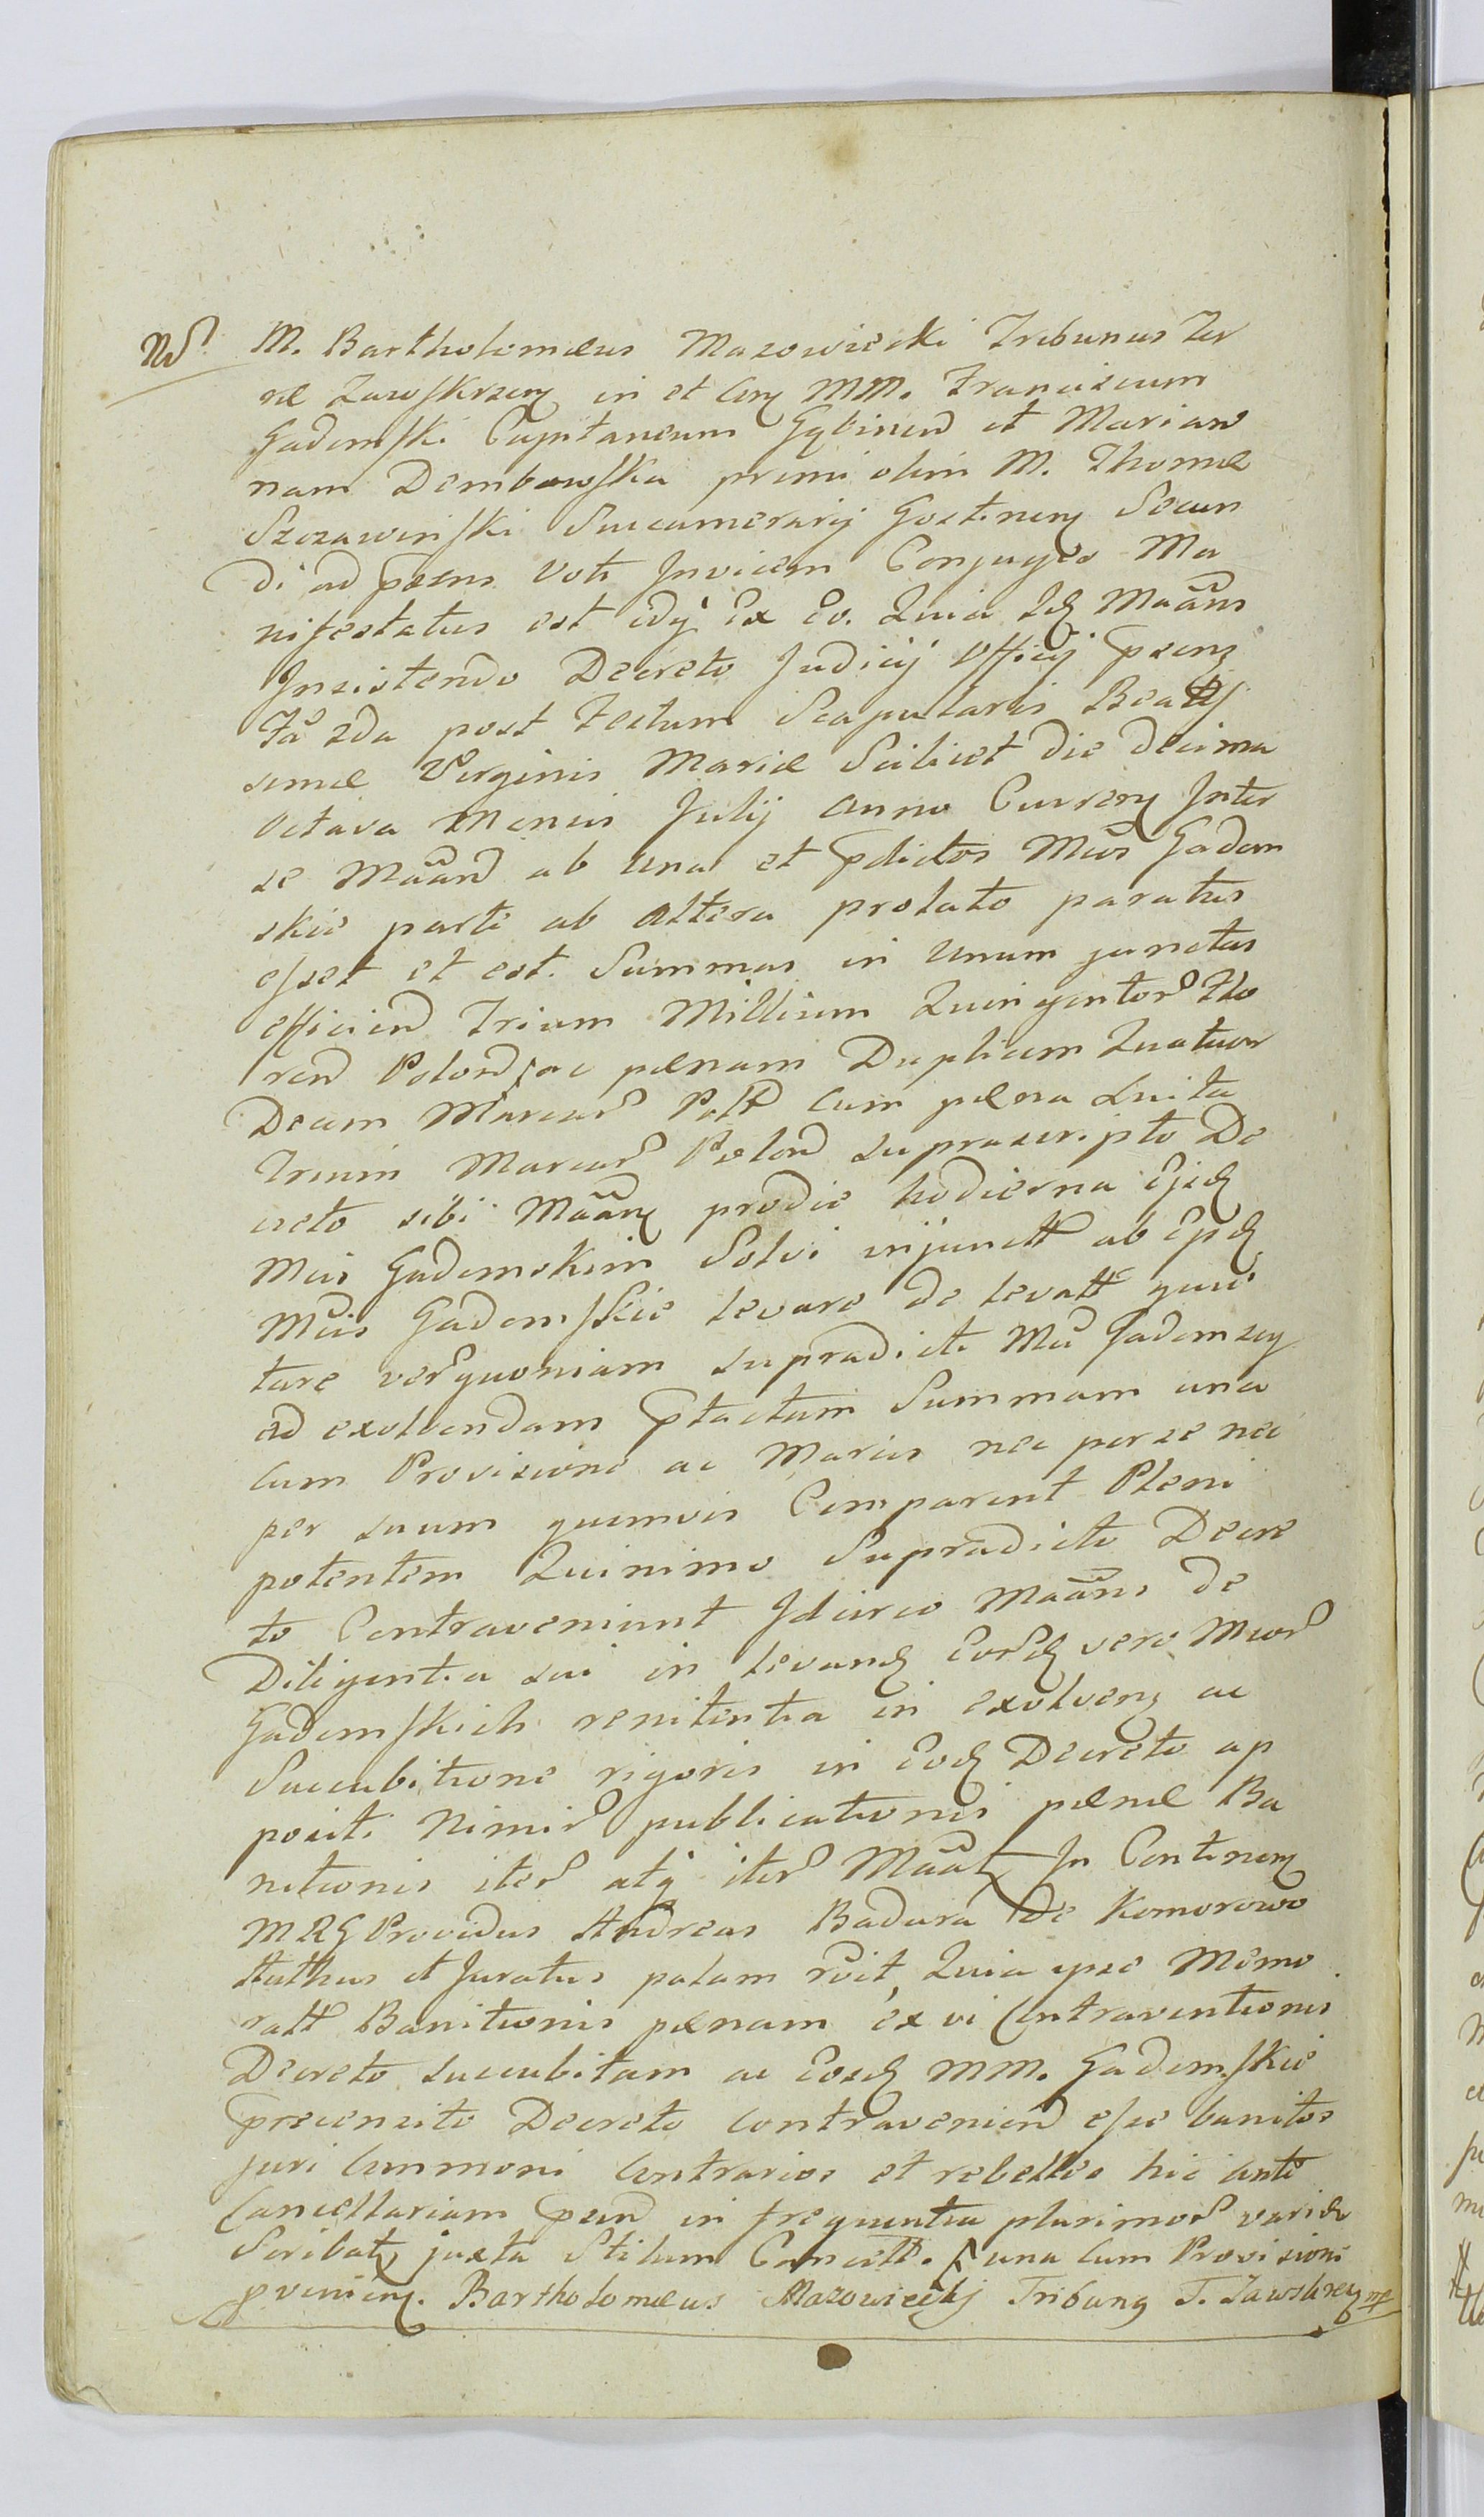 Nd
M. Bartholomæus Mazowiecki Tribunus Ter
ræ Zawskrzen in et con MM. Franciscum
Gademski Capitaneum Gąbinen et Marian
nam Dembowska primi olim M. Thomæ
Szczawinski Succamerarij Gostinen Secun
di ad præns Voti Invicem Conjuges Ma
nifestatus est idq Ex Eo. Quia Idem Maãns
Insistendo Decreto Judicij Officij præn
Fa 2da post Festum Scapularis Beatis
simæ Virginis Mariæ Scilicet die decima
Octava Mensis Julij Anno Curren Inter
se Maãn ab una et pdictos Mcos Gadom
skie parte ab altera prolato paratus
esset et est. Summas in unum junctas
efficien Trium Millium Quingentor Flo
ren Polon, ac pænam Duplicem Quatuor
Decim Marcar Poll cum pæna Luita
Trium Marcar Polon suprascripto De
creto sibi Maãn prodie hodierna Ejsd
Mcis Gademskim Solvi injunctt ab Ejsd
Mcis Gademskie levare de levatt quie
tare ver quoniam supradicti Mci Gademscy
ad exolvendam ptactam Summam una
cum Provisione ac Marcis nec per se nec
per suum quemvis Comparent Pleni
potentem Quinimo Supradicto Decre
to Contraveniunt Idcirco Maãns de
Diligentia sui in levand Eord vero Mcor
Gademskich renitentia in exolven ac
Succubitione rigoris in Eod Decreto ap
positi Nimir publicationis pænæ Ba
nitionis iter atq iter Maãt In Continen
MRG Providus Andreas Badura De Komorowo
Authus et Juratus palam rcit, Quia ipse Memo
ratt Banitionis pænam ex vi Contraventionis
Decreto succubitam ac Eosd MM. Gademskie
præcensito Decreto contravenien esse banitos
Juri Commoni Contrarios et rebelles hic ante
Cancellariam præn in frequentia plurimor
Scribat juxta Stilum Cancell. una cum Provisioni
pvenien. Bartholomæus Mazowiecki Tribung T. Zawskrzen mp